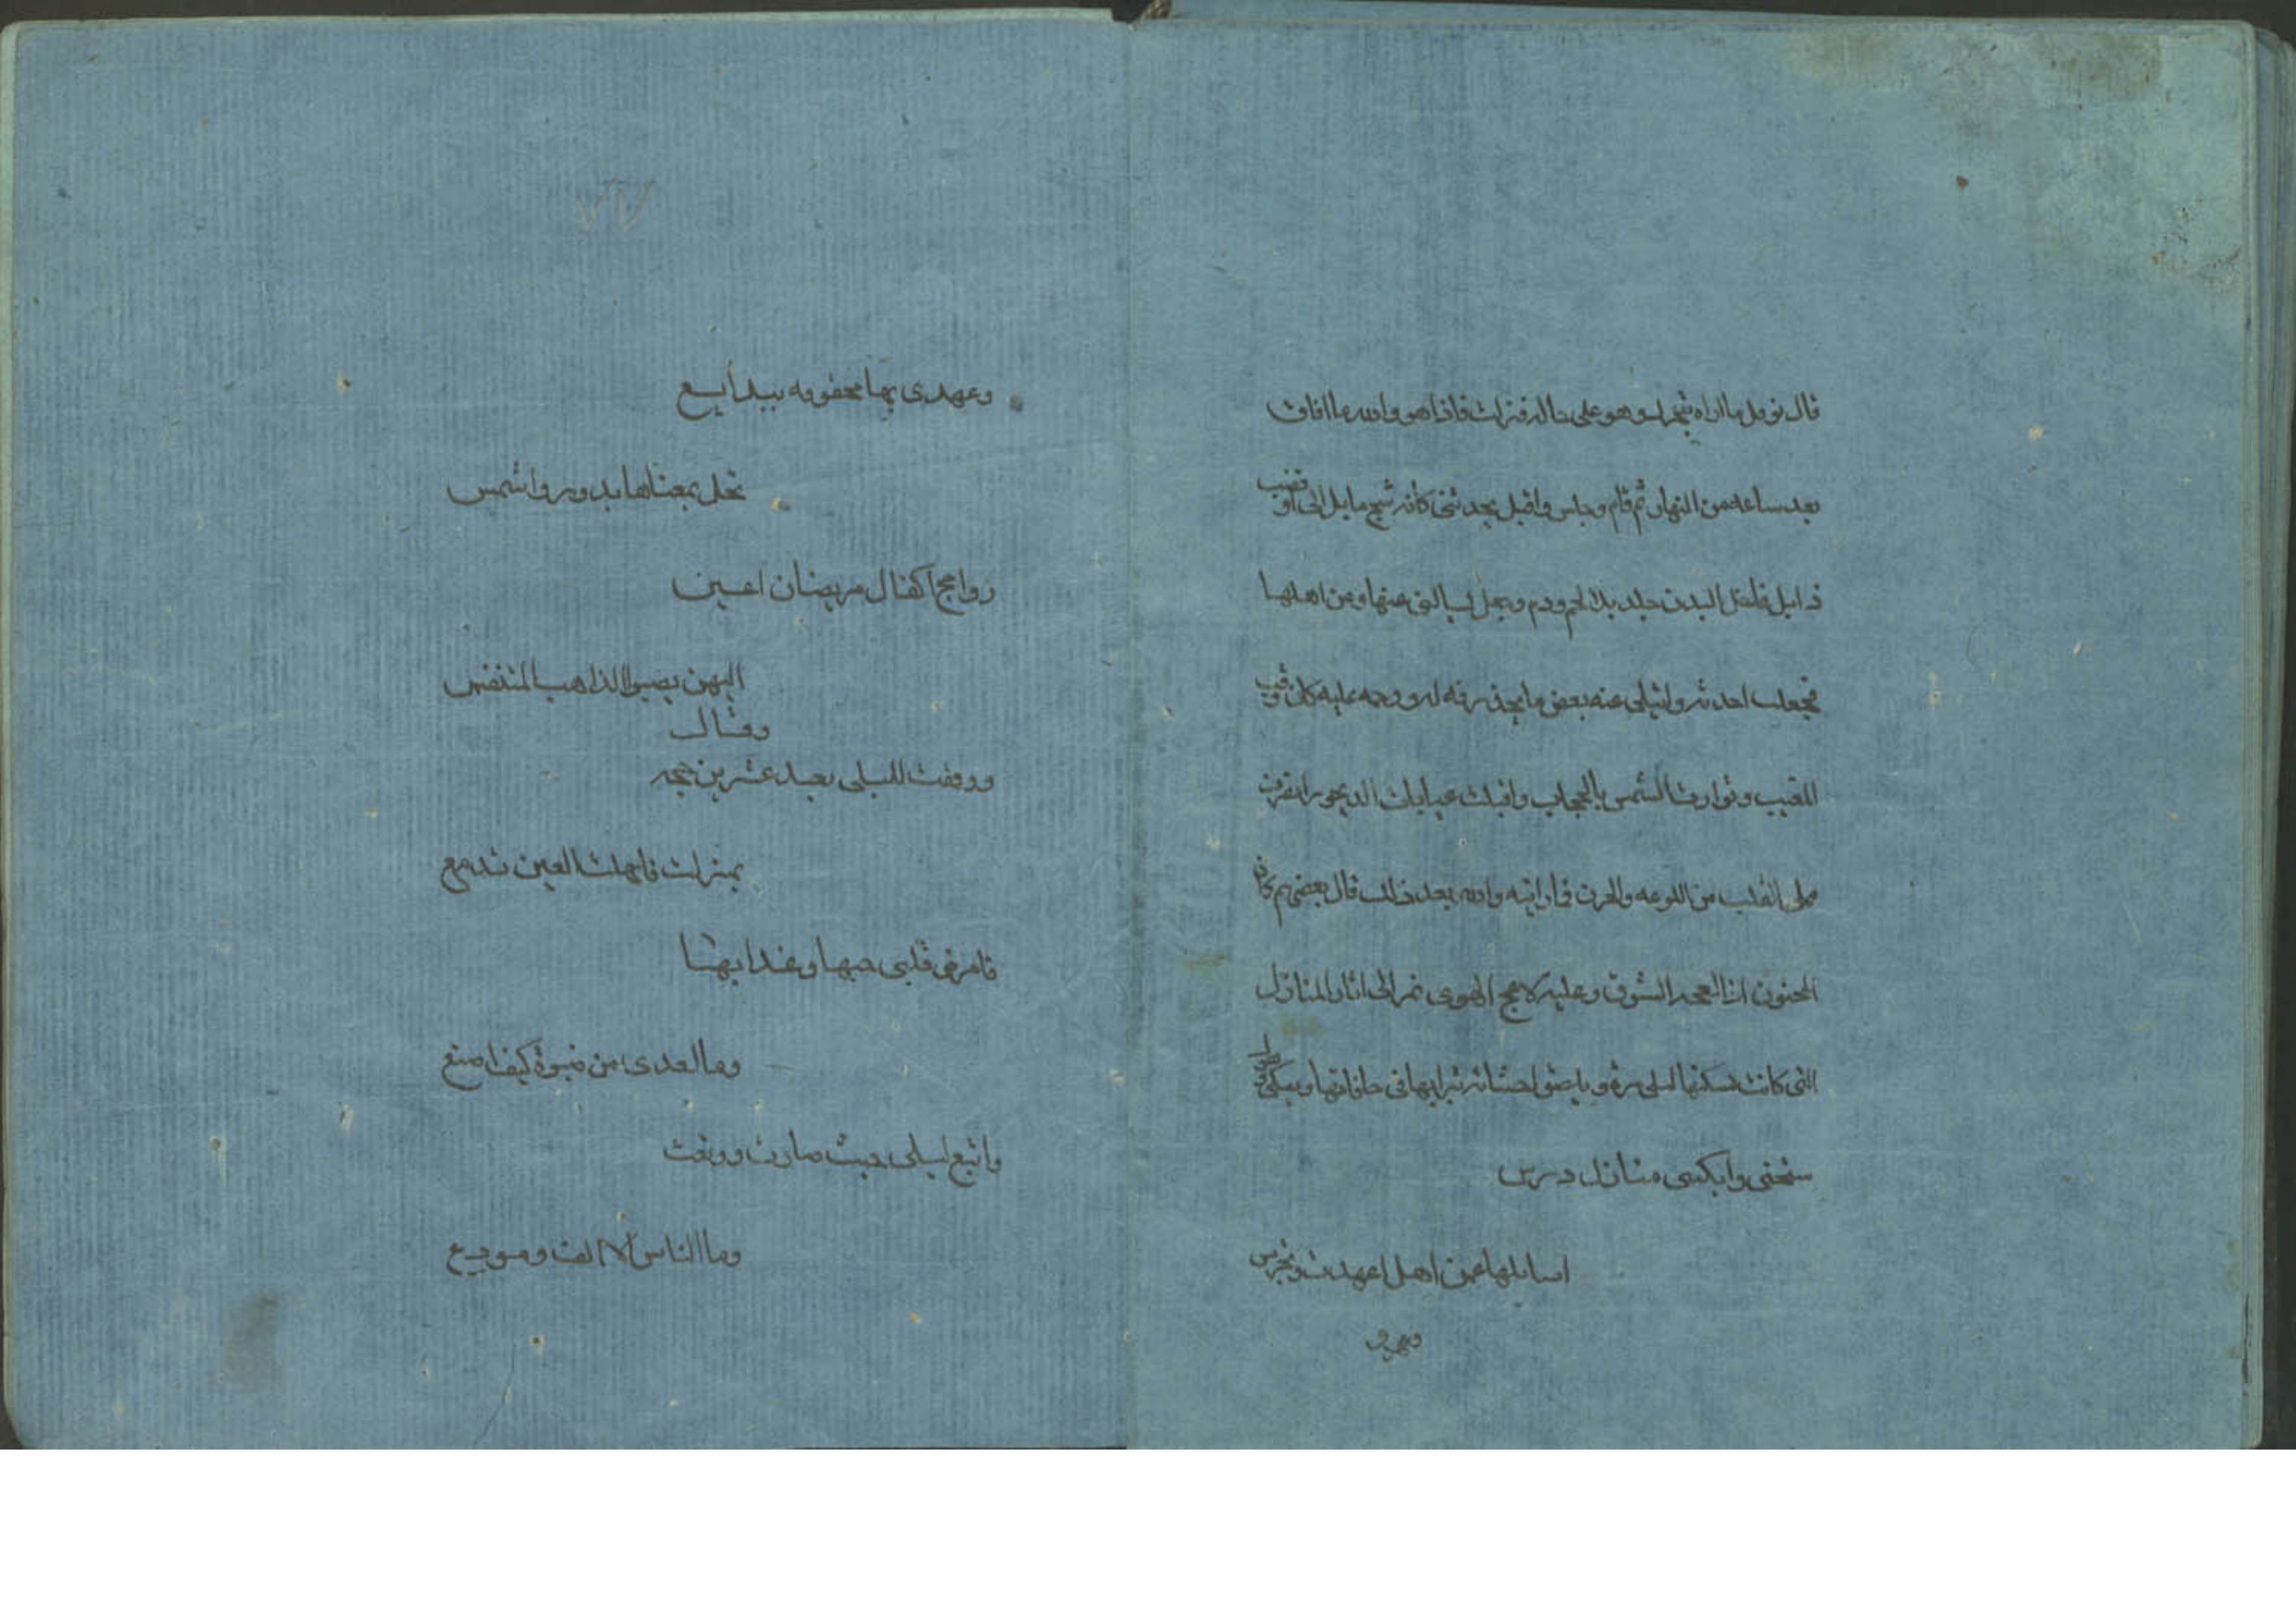 قال نوفل ما اراه شجرات وهو على حاله فنزلت فاذا هو والله ما افاق
بعد ساعه من النهار ثم قام وجلس واقبل يحدثنى كانه شبح مايل الى او قضيب
ذابل البدن جلد بلا لحم ودم وجعل يسالنى عنها وعن اهلها
فجعلت احدثه عنه بعض ما يجد رفه له ورحمه عليه كان
المغيب وتوارت الشمس بالحجاب واقبلت الديجور انصرفت
القلب من اللوعه والحزن فما رايته والله بعد ذلك قال بعضهم كان
المجنون اذا الشوق وعليه لاعج الهوى نمر الى اثار المنازل
التى كانت تسكنها ليلى مره و يلصق احشائه بترابها فى حافاتها ويبكى
سنحنى وابكسى منازل درس
اسايلها عمن اهل اعهدت وتخرس
وعهدى
وعهدى بها محفوفه ببدايع
تحل بمعناها بدور واشمس
رواجح اكفال مريضان اعين
اليهن يصبوا الذاهب المتنفس
وقال
ووقفت لليلى بعد عشرين حجه
بمنزلت فانهلت العين تدمع
فامرض قلبى حبها وعذابها
وما لعدى من صبوة كيف اصنع
واتبع ليلى حيث صارت وودعت
وما الناس الا الف ومودع